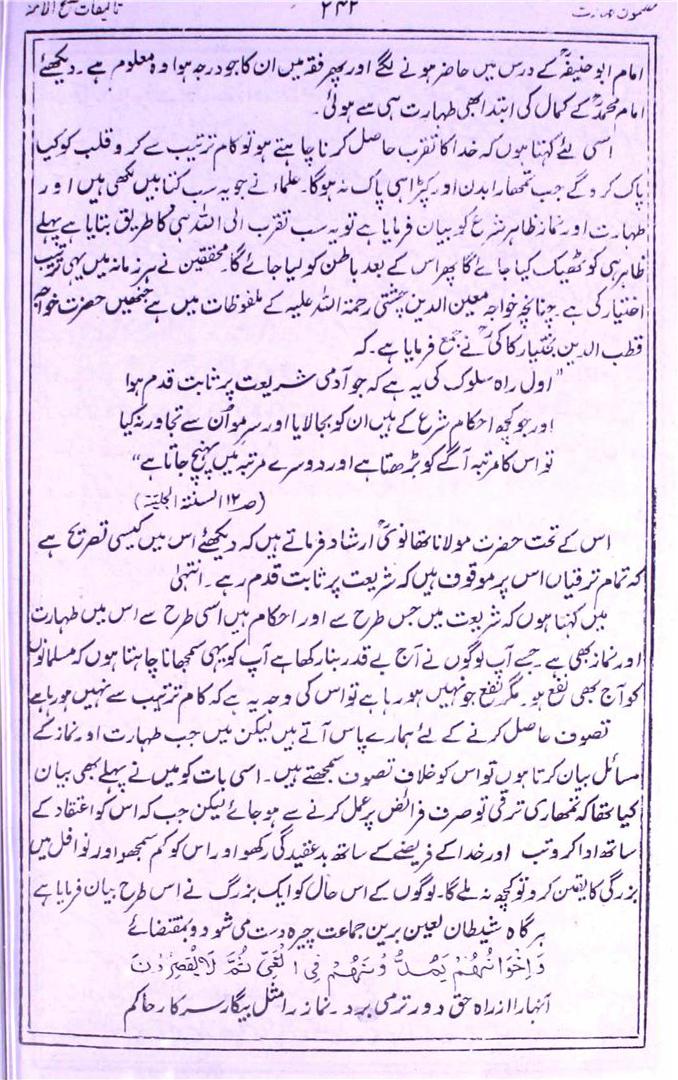 مضمون طہارت ۲۴۲ تالیفات مصلح الامت
امام ابوحنیفہؒ کے درس میں حاضر ہونے لگے اور پھر فقہ میں ان کا جو درجہ ہوا وہ معلوم ہے۔ دیکھئے
امام محمدؒ کے کمال کی ابتدا بھی طہارت ہی سے ہوئی۔
اسی لئے کہتا ہوں کہ خدا کا تقرب حاصل کرنا چاہتے ہو تو کام ترتیب سے کرو قلب کو کیا
پاک کرو گے جب تمھارا بدن اور کپڑا ہی پاک نہ ہوگا۔ علماء نے جو یہ سب کتابیں لکھی ہیں اور
طہارت اور نماز ظاہر شرع کو بیان فرمایا ہے تو یہ سب تقرب الی اللہ ہی کا طریق بتایا ہے پہلے
ظاہر ہی کو ٹھیک کیا جائے گا پھر اس کے بعد باطن کو لیا جائے گا۔ محققین نے ہر زمانہ میں یہی ترتیب
اختیار کی ہے چنانچہ خواجہ معین الدین چشتی رحمۃ اللہ علیہ کے ملفوظات میں ہے جنھیں حضرت خواجہ
قطب الدین بختیار کاکیؒ نے جمع فرمایا ہے۔ کہ
"اول راہ سلوک کی یہ ہے کہ جو آدمی شریعت پر ثابت قدم ہوا
اور جو کچھ احکام شرع کے ہیں ان کو بجالایا اور سرمو اُن سے تجاوز نہ کیا
تو اس کا مرتبہ آگے کو بڑھتا ہے اور دوسرے مرتبہ میں پہنچ جاتا ہے"
(ص۱۲ السنۃ الجلیۃ)
اس کے تحت حضرت مولانا تھانویؒ ارشاد فرماتے ہیں کہ دیکھئے اس میں کیسی تصریح ہے
کہ تمام ترقیاں اس پر موقوف ہیں کہ شریعت پر ثابت قدم رہے۔ انتہیٰ
میں کہتا ہوں کہ شریعت میں جس طرح سے اور احکام ہیں اسی طرح سے اس میں طہارت
اور نماز بھی ہے جسے آپ لوگوں نے آج بے قدر بنا رکھا ہے آپ کو یہی سمجھانا چاہتا ہوں کہ مسلمانوں
کو آج بھی نفع ہو۔ مگر نفع جو نہیں ہو رہا ہے تو اس کی وجہ یہ ہے کہ کام ترتیب سے نہیں ہو رہا ہے
تصوف حاصل کرنے کے لئے ہمارے پاس آتے ہیں لیکن میں جب طہارت اور نماز کے
مسائل بیان کرتا ہوں تو اس کو خلاف تصوف سمجھتے ہیں۔ اسی بات کو میں نے پہلے بھی بیان
کیا تھا کہ تمھاری ترقی تو صرف فرائض پر عمل کرنے سے ہو جائے لیکن جب کہ اس کو اعتقاد کے
ساتھ ادا کرو تب اور خدا کے فریضے کے ساتھ بدعقیدگی رکھو اور اس کو کم سمجھو اور نوافل میں
بزرگی کا یقین کرو تو کچھ نہ ملے گا۔ لوگوں کے اس حال کو ایک بزرگ نے اس طرح بیان فرمایا ہے
ہرگاہ شیطان لعین برین جماعت چیرہ دست می شود و بمقتضائے
وَاِخْوَانُهُمْ يَمُدُّوْنَهُمْ فِى الْغَىِّ ثُمَّ لَا يُقْصِرُوْنَ
آنہارا از راہ حق دور ترمی برد۔ نماز را مثل بیگار سرکار حاکم